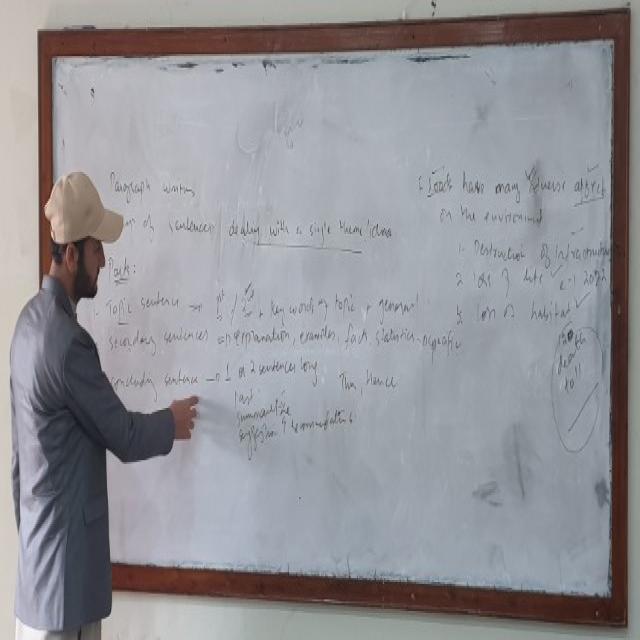 Paragraph writing
of sentences dealing with a single theme/idea
Parts:
Topic sentence → 1st / + key words of topic + general
Secondary sentences ⇒ explanation, examples, facts, statistics
sentence → 1 or 2 sentences long Thus, Hence
last
summarize
suggestion
have many adverse affect
on the environment
1. Destruction of infrastructure
2 loss of
3 loss of habitat
death
toll